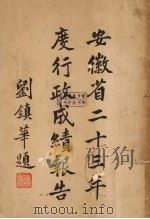 安徽省二十三年
度行政成績報告
劉鎮華題